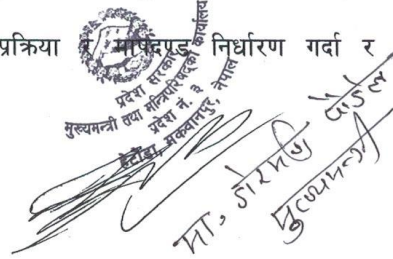 प्रक्रिया र मापदण्ड निर्धारण गर्दा र
प्रदेश सरकार
मुख्यमन्त्री तथा मन्त्रिपरिषद्को कार्यालय
प्रदेश नं. ३
हेटौंडा, मकवानपुर, नेपाल
मा. डोरमणि पौडेल
मुख्यमन्त्री